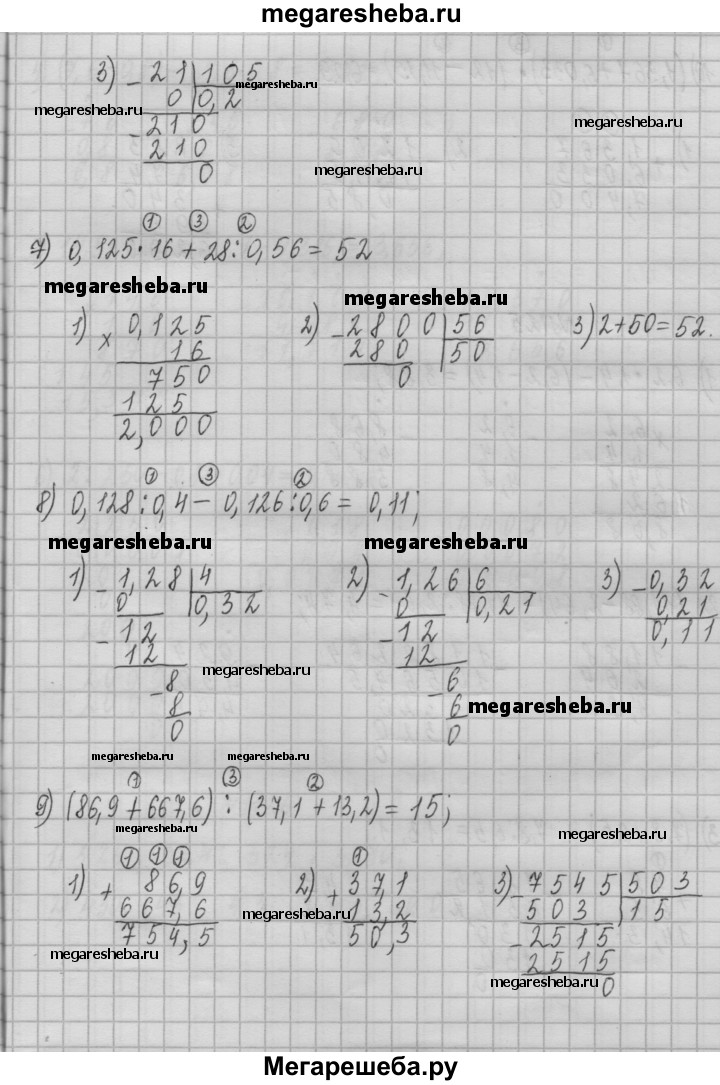 megaresheba.ru
3) - 21 | 105
megaresheba.ru
0 | 0,2
megaresheba.ru
- 210
megaresheba.ru
210
megaresheba.ru
0
① ③ ②
7) 0,125·16 + 28:0,56 = 52
megaresheba.ru
megaresheba.ru
1) × 0,125
16
750
125
2,000
2) - 2800 | 56
280 | 50
0
3) 2+50=52.
① ③ ②
8) 0,128:0,4 - 0,126:0,6 = 0,11;
megaresheba.ru
megaresheba.ru
1) - 1,28 | 4
0 | 0,32
- 12
12
- 8
8
0
megaresheba.ru
2) - 1,26 | 6
0 | 0,21
- 12
12
- 6
6
0
megaresheba.ru
3) - 0,32
0,21
0,11
megaresheba.ru
megaresheba.ru
① ③ ②
9) (86,9 + 667,6) : (37,1 + 13,2) = 15;
megaresheba.ru
megaresheba.ru
① ① ①
1) + 86,9
667,6
754,5
megaresheba.ru
①
2) + 37,1
13,2
50,3
megaresheba.ru
3) - 7545 | 503
503 | 15
- 2515
2515
0
megaresheba.ru
Мегарешеба.ру